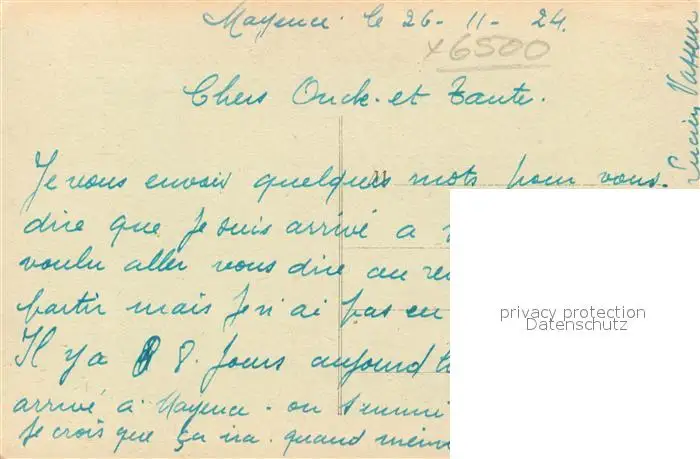 Mayence. le 26-11-24.
x6500
Chers Oncle. et Tante.
Je vous envoir quelques mots pour vous.
dire que Je suis arrivé a
voulu aller vous dire au re
partir mais Je n'ai pas eu
Il y a 8. Jours aujourd h
arrivé a Mayence. on
Je crois que ça ira. quand mem
Lucien
privacy protection
Datenschutz